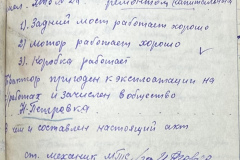 ремонтом капитальном
1). Задний мост работает хорошо
2) мотор работает хорошо
3). Коробка работает
Трактор пригоден к эксплоатации на
работах и зачислен в общество
Н-Петровка
чем и составлен настоящий акт
ст. механик МТС